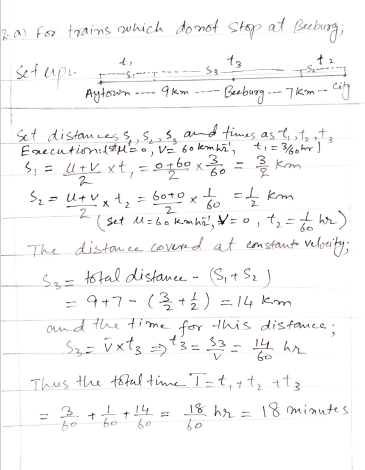 2.a) For trains which donot stop at Beeburg;
Set up:- t₁ t₃ t₂
S₁ S₃ S₂
Aytown ---- 9km ---- Beeburg --- 7km -- City
Set distances S₁, S₂, S₃ and times as t₁, t₂, t₃
Execution: U=0, V= 60 kmhr⁻¹, t₁ = 3/60 hr)
S₁ = (u+v)/2 × t₁ = (0+60)/2 × 3/60 = 3/2 km
S₂ = (u+v)/2 × t₂ = (60+0)/2 × 1/60 = 1/2 km
(Set U=60 kmhr⁻¹, V=0, t₂ = 1/60 hr)
The distance covered at constant velocity;
S₃ = total distance - (S₁+S₂)
= 9+7 - (3/2 + 1/2) = 14 km
and the time for this distance;
S₃ = v̄×t₃ ⇒ t₃ = S₃/v = 14/60 hr
Thus the total time T = t₁+t₂+t₃
= 3/60 + 1/60 + 14/60 = 18/60 hr = 18 minutes